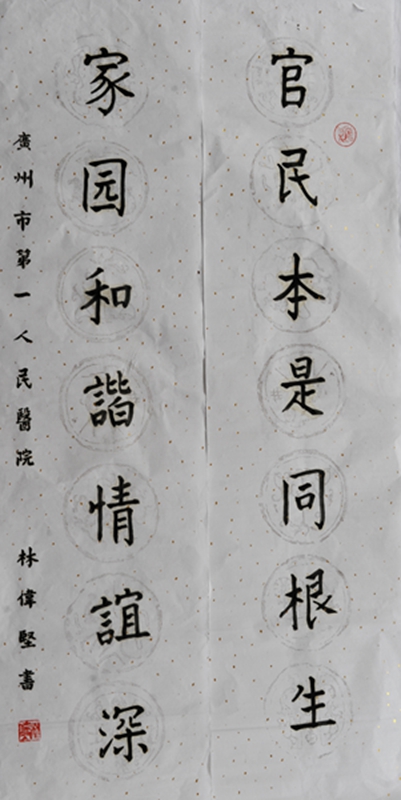 官民本是同根生
家园和諧情誼深
廣州市第一人民醫院 林偉堅書